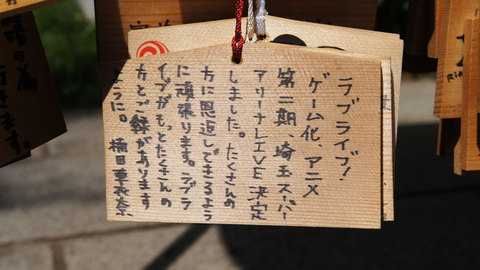 ラブライブ!
ゲーム化、アニメ
第二期、埼玉スーパー
アリーナLIVE決定
しました。たくさんの
方に恩返しできるよう
に頑張ります。ラブラ
イブがもっとたくさんの
方とご縁があります
ように。